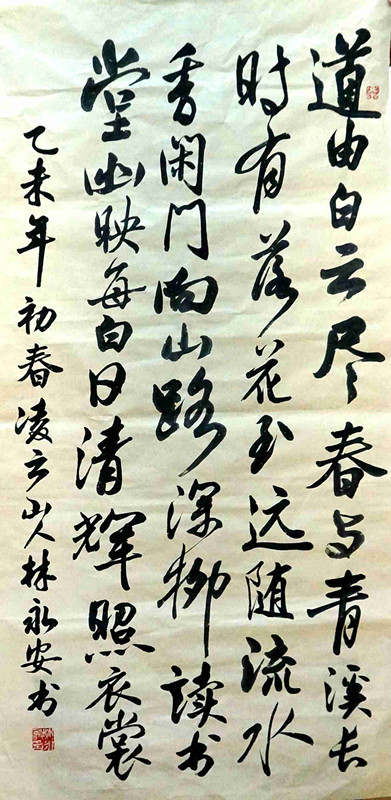 道由白云尽春与青溪长
时有落花至远随流水
香闲门向山路深柳读书
堂幽映每白日清辉照衣裳
乙未年初春凌云山人林永安书